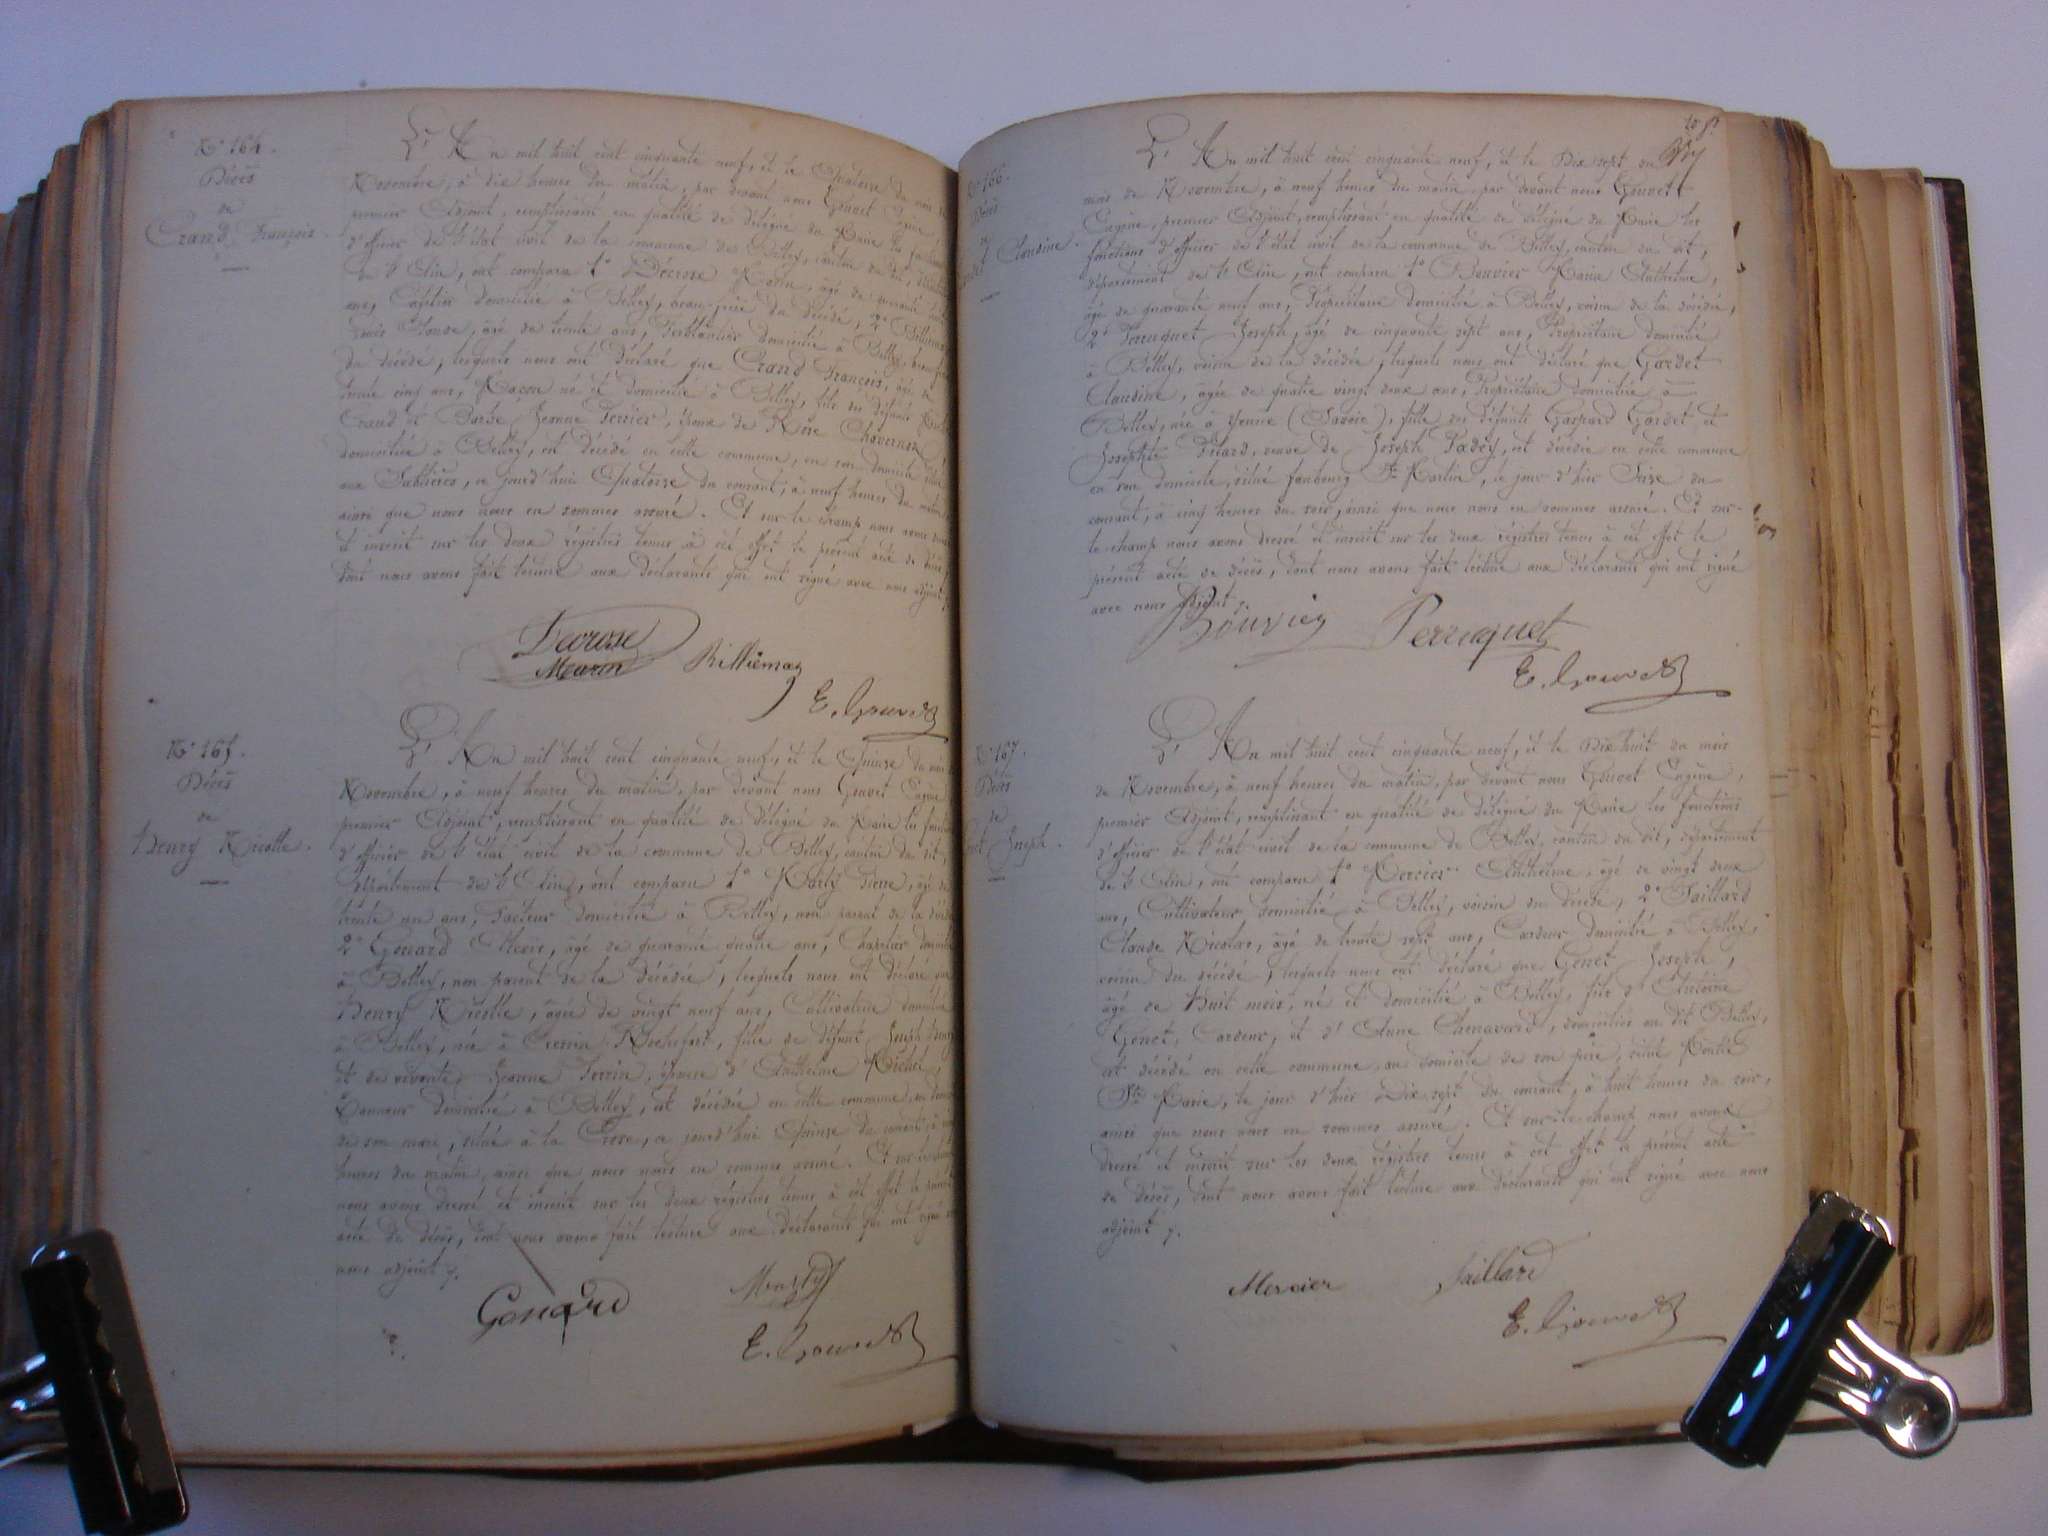 N° 164.
Décès
de
Crand François.
L'An mil huit cent cinquante neuf, et le Quatorze du mois de
Novembre, à dix heures du matin, par devant nous Gouvet Eugène,
premier Adjoint, remplissant en qualité de délégué du Maire les fonctions
d'officier de l'état civil de la commune de Belley, canton du dit, département
de l'Ain, ont comparu 1° Décrose Marin, âgé de quarante
ans, Cafetier domicilié à Belley, beau-frère du décédé, 2° Billiemaz
Claude, âgé de trente ans, Ferblantier domicilié à Belley, beau-frère
du décédé, lesquels nous ont déclaré que Crand François, âgé de
trente cinq ans, Maçon né et domicilié à Belley, fils du défunt
Crand et Barbe Jeanne Perrier, époux de Rose
domiciliée à Belley, est décédé en cette commune, en son domicile situé
aux Sablières, ce jourd'hui Quatorze du courant, à neuf heures du matin
ainsi que nous nous en sommes assuré. Et sur le champ nous avons dressé
et inscrit sur les deux régistres tenus à cet effet le présent acte de décès,
dont nous avons fait lecture aux déclarants qui ont signé avec nous adjoint
Decrose
Marin
Billiemaz
E. Gouvet
N° 165.
Décès
de
Henry Nicolle.
L'An mil huit cent cinquante neuf, et le Quinze du mois
Novembre, à neuf heures du matin, par devant nous Gouvet Eugène
premier Adjoint, remplissant en qualité de délégué du Maire les fonctions
d'officier de l'état civil de la commune de Belley, canton du dit,
département de l'Ain, ont comparu 1° Marty Pierre, âgé de
trente un ans, Facteur domicilié à Belley, non parent de la décédée
2° Gonard Alexis, âgé de quarante quatre ans, Chapelier domicilié
à Belley, non parent de la décédée, lesquels nous ont déclaré que
Henry Nicolle, âgée de vingt neuf ans, Cultivatrice domiciliée
à Belley, née à Cressin Rochefort, fille de défunt Joseph Henry
et de vivante Jeanne Perrin, épouse d'Anthelme Michel,
Tanneur domicilié à Belley, est décédée en cette commune, au domicile
de son mari, située à la Croze, ce jourd'hui Quinze du courant, à
heures du matin, ainsi que nous nous en sommes assuré. Et sur le champ
nous avons dressé et inscrit sur les deux régistres tenus à cet effet le présent
acte de décès, dont nous avons fait lecture aux déclarants qui ont signé
nous adjoint.
Gonard
Marty
E. Gouvet
108
N° 166.
Décès
de
Gardet Claudine.
L'An mil huit cent cinquante neuf, et le Dix sept du
mois de Novembre, à neuf heures du matin par devant nous Gouvet
Eugène, premier Adjoint, remplissant en qualité de délégué du Maire les
fonctions d'officier de l'état civil de la commune de Belley, canton du dit,
département de l'Ain, ont comparu 1° Bouvier Marin Anthelme,
âgé de quarante neuf ans, Propriétaire domicilié à Belley, voisin de la décédée,
2° Perruquet Joseph, âgé de cinquante sept ans, Propriétaire domicilié
à Belley, voisin de la décédée, lesquels nous ont déclaré que Gardet
Claudine, âgée de quatre vingt deux ans, Propriétaire domiciliée à
Belley, née à Yenne (Savoie), fille des défunts Gaspard Gardet et
Josephte, veuve de Joseph Padey, est décédée en cette commune
en son domicile, situé faubourg St Martin, le jour d'hier Seize du
courant, à cinq heures du soir, ainsi que nous nous en sommes assuré. Et sur-
le-champ nous avons dressé et inscrit sur les deux régistres tenus à cet effet le
présent acte de décès, dont nous avons fait lecture aux déclarants qui ont signé
avec nous adjoint.
Bouvier
Perruquet
E. Gouvet
N° 167.
Décès
de
Genet Joseph.
L'An mil huit cent cinquante neuf, et le Dix huit du mois
de Novembre, à neuf heures du matin, par devant nous Gouvet Eugène,
premier Adjoint, remplissant en qualité de délégué du Maire les fonctions
d'officier de l'état civil de la commune de Belley, canton du dit, département
de l'Ain, ont comparu 1° Mercier Anthelme, âgé de vingt deux
ans, Cultivateur domicilié à Belley, voisin du décédé, 2° Taillard
Claude Nicolas, âgé de trente sept ans, Cardeur domicilié à Belley,
voisin du décédé, lesquels nous ont déclaré que Genet Joseph,
âgé de huit mois, né et domicilié à Belley, fils d'Antoine
Genet, Cardeur, et d'Anne Chenavard, domiciliés au dit Belley,
est décédé en cette commune, au domicile de son père, situé Montée
Ste Marie, le jour d'hier Dix sept du courant, à huit heures du soir,
ainsi que nous nous en sommes assuré. Et sur-le-champ nous avons
dressé et inscrit sur les deux régistres tenus à cet effet le présent acte
de décès, dont nous avons fait lecture aux déclarants qui ont signé avec nous
adjoint.
Mercier
Taillard
E. Gouvet